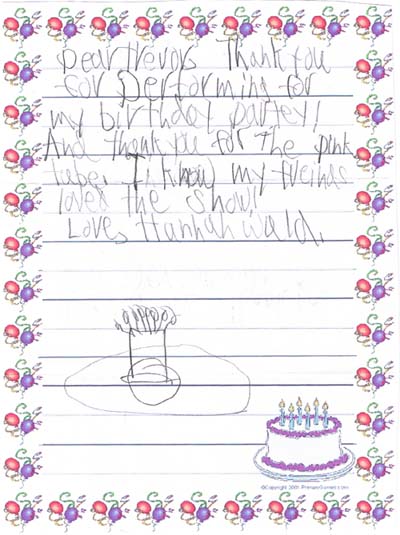 Dear Trevor, Thank you
for performing for
my birthday partey!
And thank you for the pink
tube. I know my freinds
loved the show!
Love, Hannah Wald.
©Copyright 2001, PrimaryGames.com